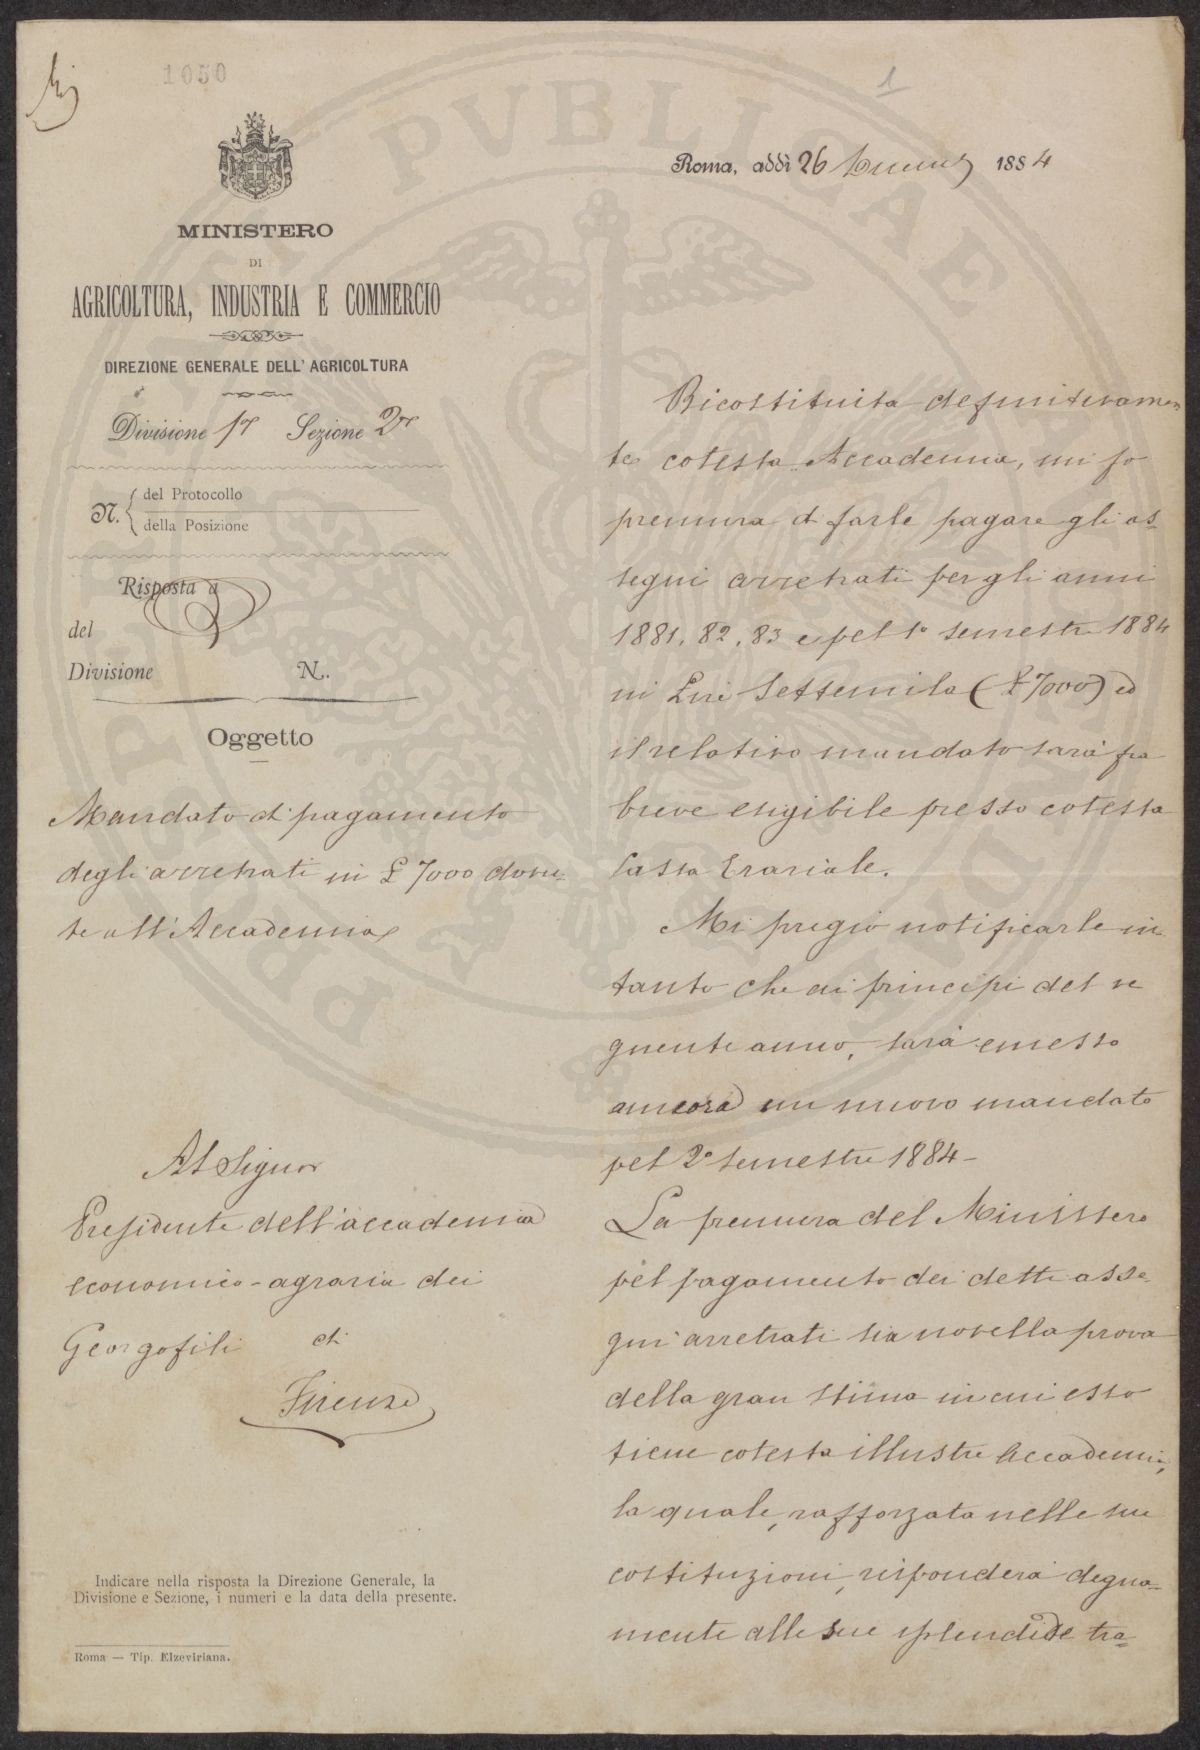 1050
1
MINISTERO
DI
AGRICOLTURA, INDUSTRIA E COMMERCIO
DIREZIONE GENERALE DELL'AGRICOLTURA
Divisione 1ª Sezione 2ª
N. del Protocollo
della Posizione
Risposta a
del
Divisione N.
Oggetto
Mandato di pagamento
degli arretrati in £ 7000 dovu-
te all'Accademia
Al Signor
Presidente dell'accademia
economico-agraria dei
Georgofili di
Firenze
Indicare nella risposta la Direzione Generale, la
Divisione e Sezione, i numeri e la data della presente.
Roma — Tip. Elzeviriana.
Roma, addì 26 1884
Ricostituita definitivamen
te cotesta Accademia, mi fo
premura di farle pagare gli as-
segni arretrati per gli anni
1881, 82, 83 e pel 1° semestre 1884
in Lire Settemila (£ 7000) ed
il relativo mandato sarà fra
breve esigibile presso cotesta
Cassa Erariale.
Mi pregio notificarle in
tanto che ai principi del se
guente anno, sarà emesso
ancora un nuovo mandato
pel 2° semestre 1884-
La premura del Ministero
pel pagamento dei detti asse-
gni arretrati sia novella prova
della gran stima in cui esso
tiene cotesta illustre Accademia,
la quale, rafforzata nelle sue
costituzioni, risponderà degna-
mente alle sue splendide tra-
PUBLICAE